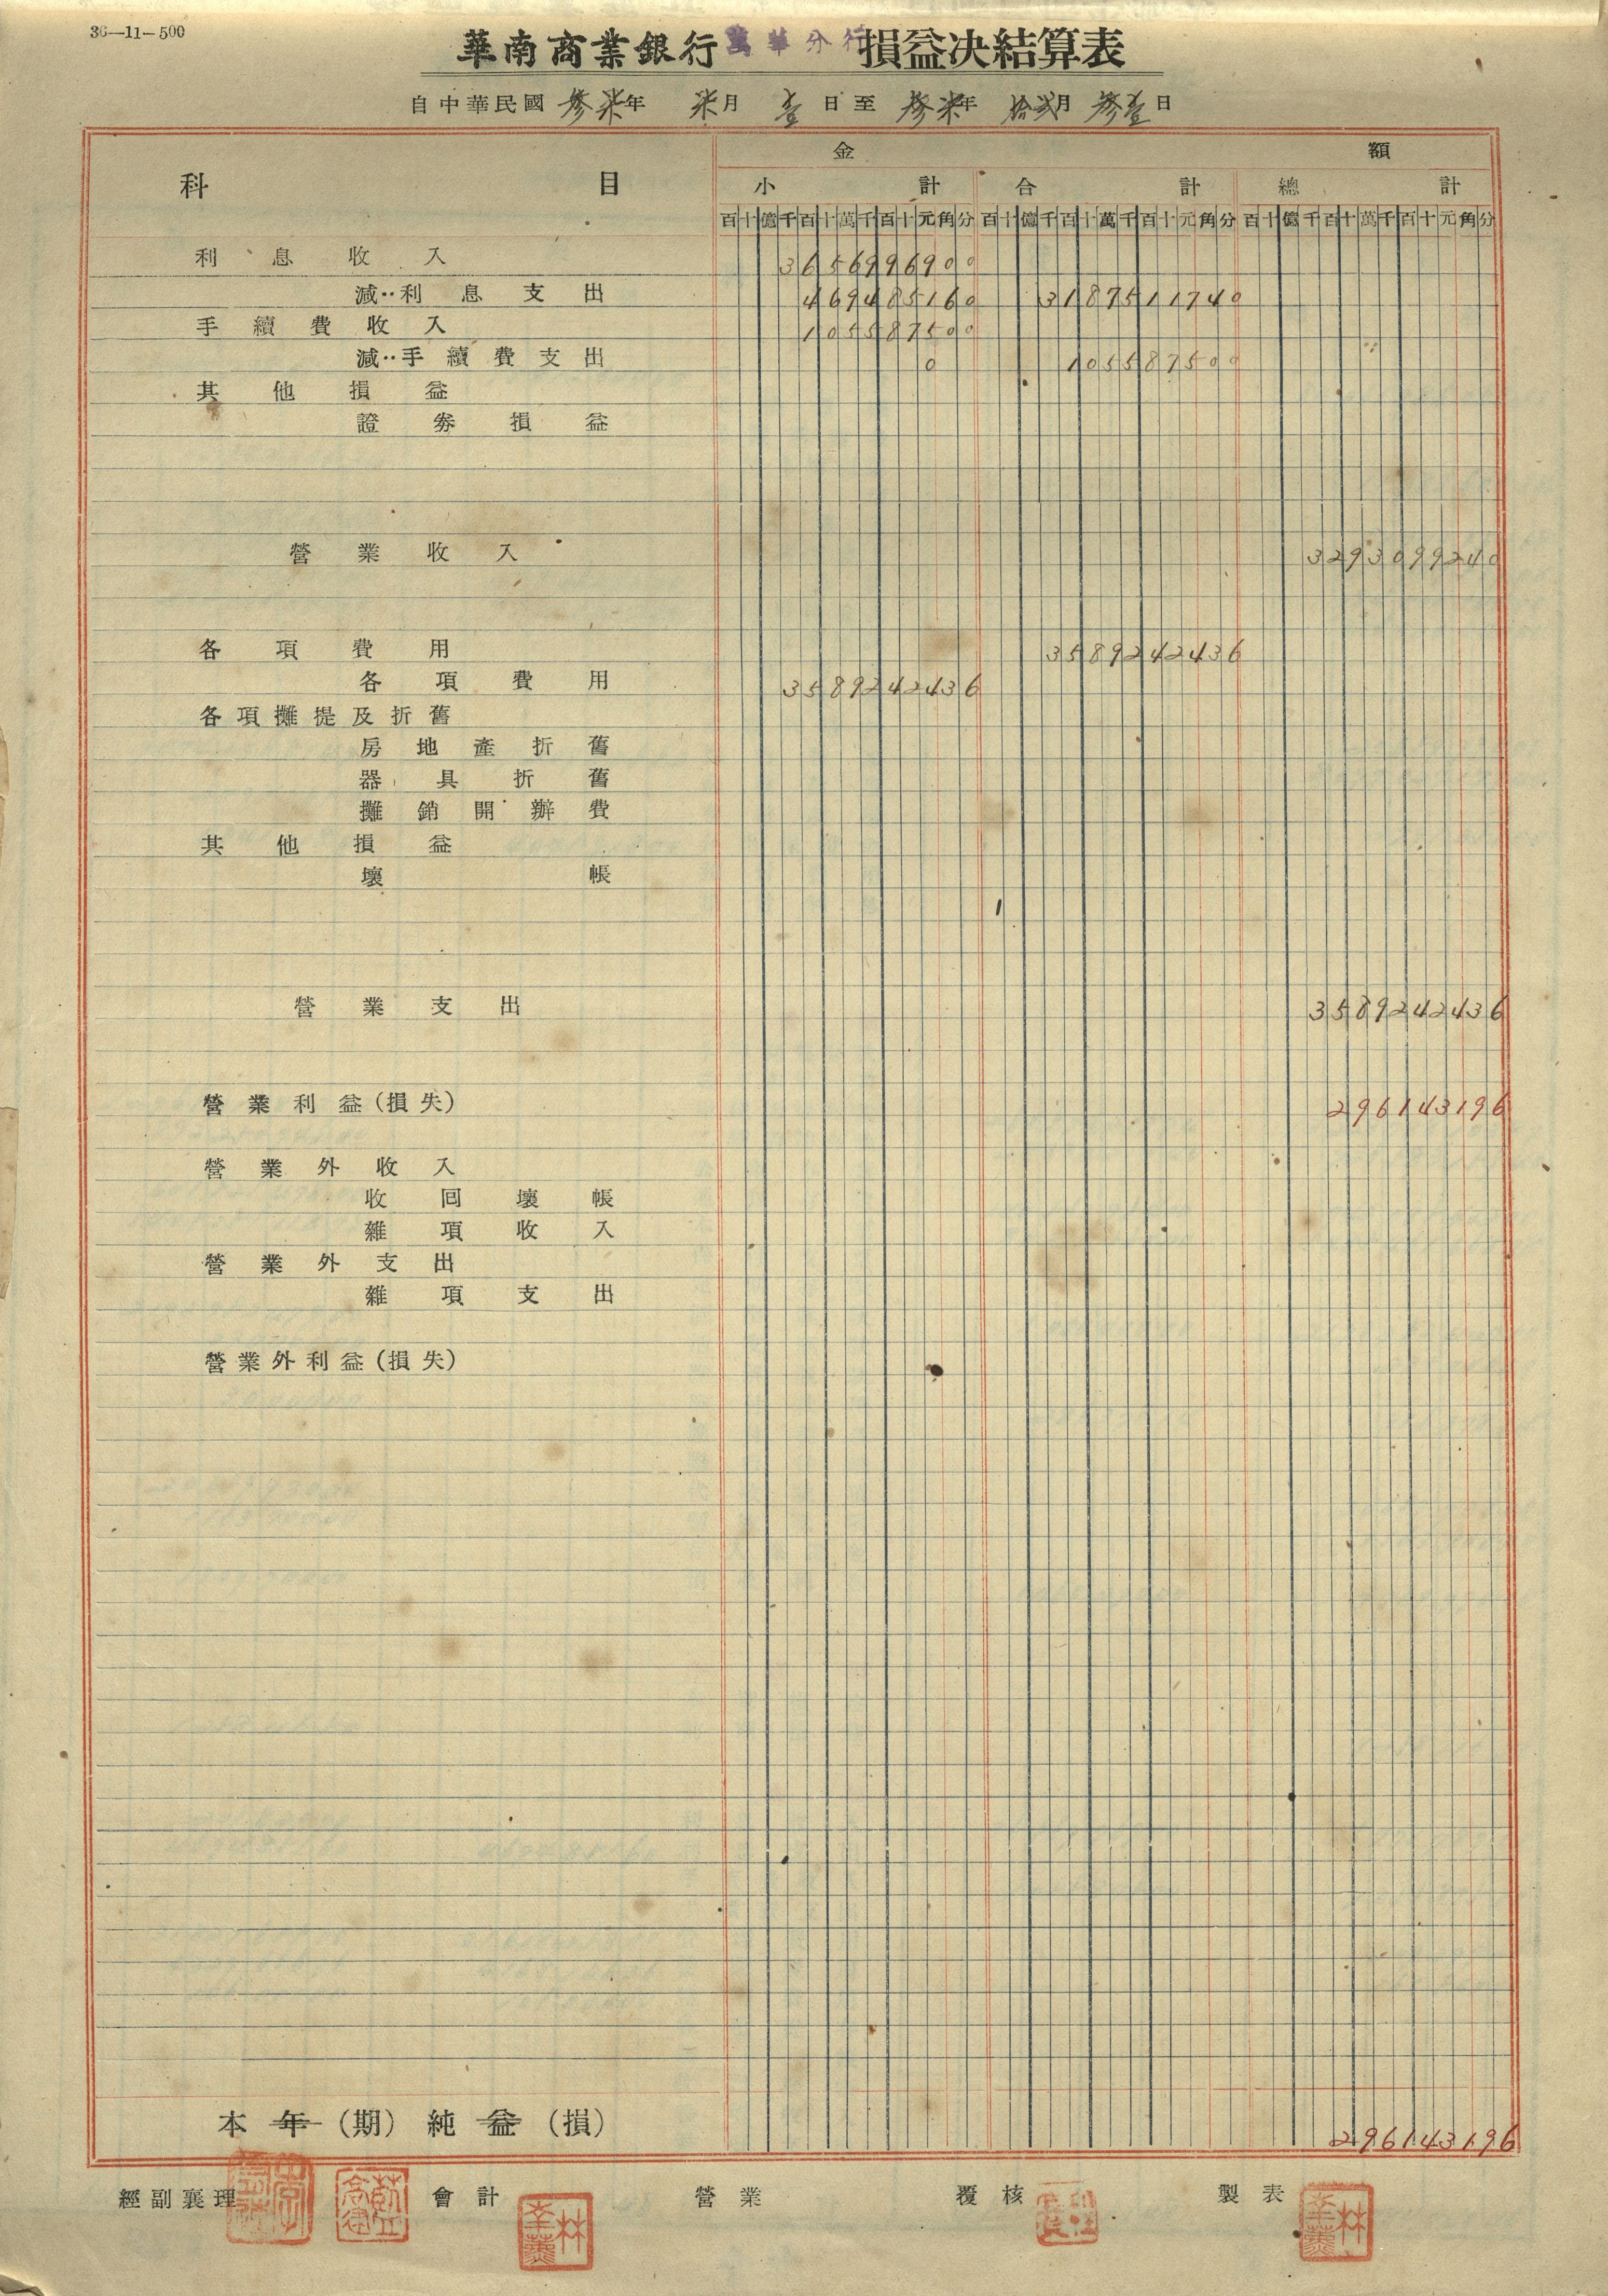 36—11—500
華南商業銀行萬華分行損益決結算表
自中華民國參柒年柒月壹日至參柒年拾弍月參壹日
科目 金額
小計 合計 總計
百十億千百十萬千百十元角分 百十億千百十萬千百十元角分 百十億千百十萬千百十元角分
利息收入 3656996900
減‥利息支出 469485160 3187511740
手續費收入 105587500
減‥手續費支出 0 105587500
其他損益
證券損益
營業收入 3293099240
各項費用 3589242436
各項費用 3589242436
各項攤提及折舊
房地產折舊
器具折舊
攤銷開辦費
其他損益
壞帳
營業支出 3589242436
營業利益(損失) 296143196
營業外收入
收回壞帳
雜項收入
營業外支出
雜項支出
營業外利益(損失)
本年(期)純益(損) 296143196
經副襄理 會計 營業 覆核 製表